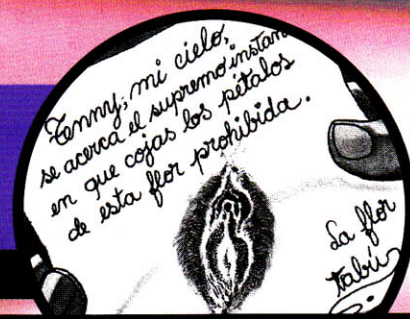 Tenny, mi cielo,
se acerca el supremo instan
en que cojas los pétalos
de esta flor prohibida.
La flor
tabú